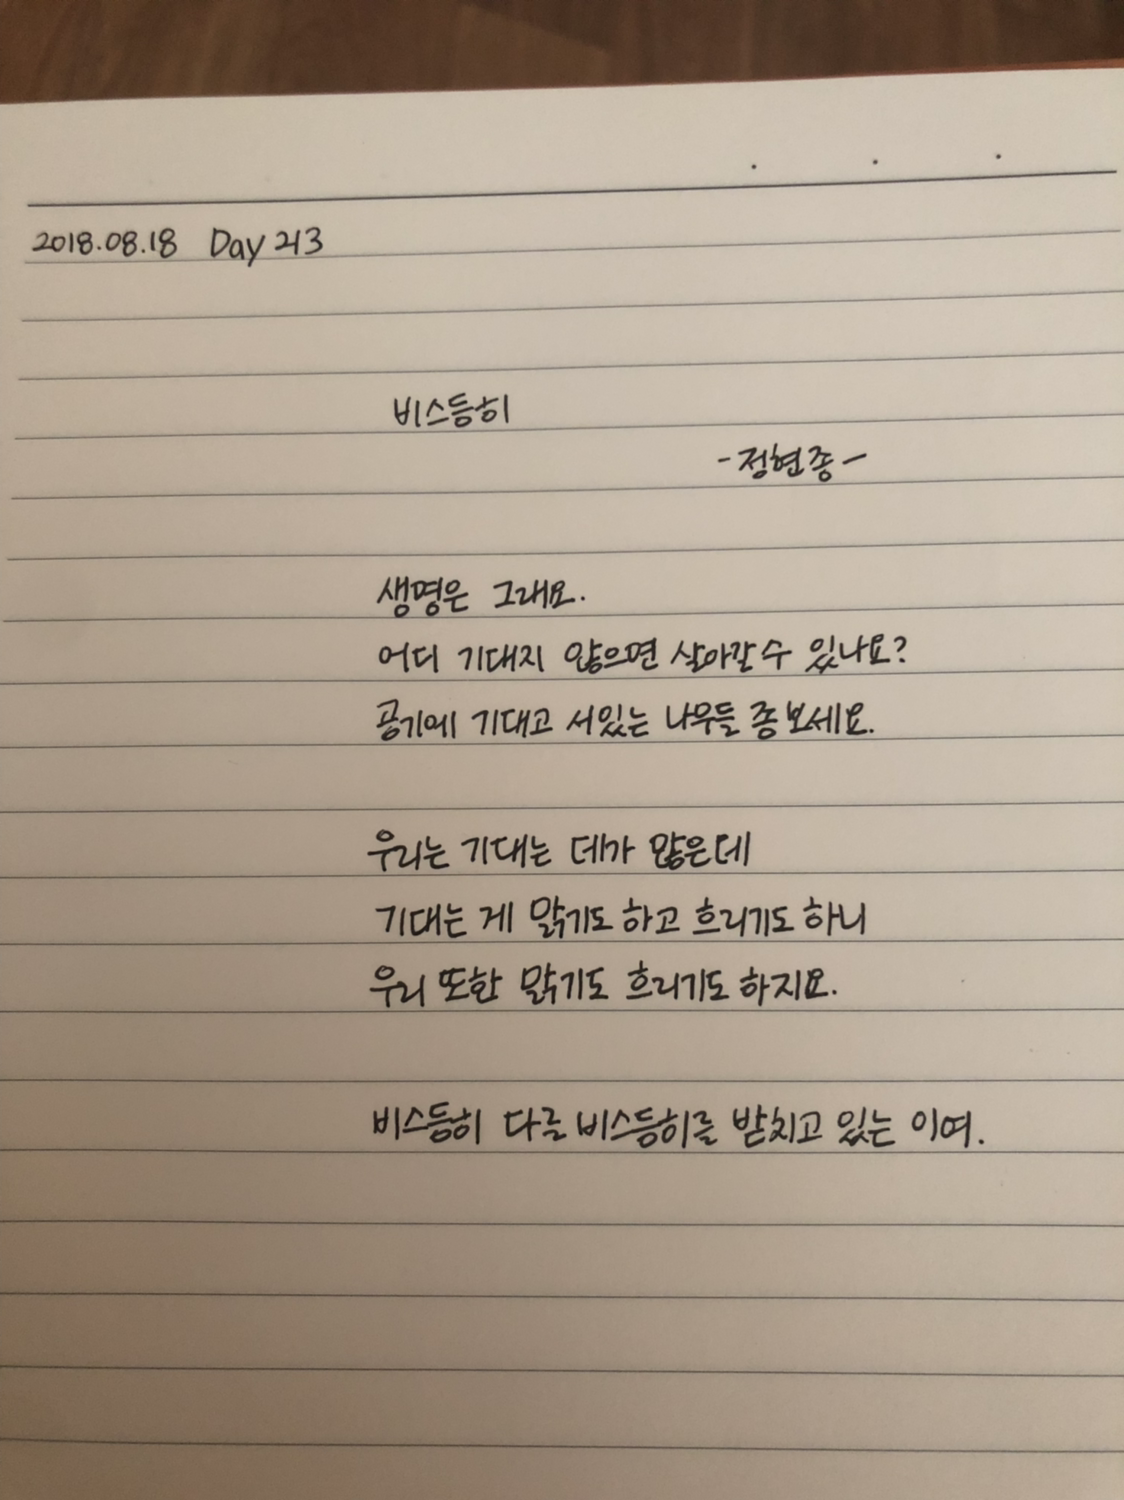 2018.08.18 Day 213
비스듬히
-정현종-
생명은 그래요.
어디 기대지 않으면 살아갈 수 있나요?
공기에 기대고 서있는 나무들 좀 보세요.
우리는 기대는 데가 많은데
기대는 게 맑기도 하고 흐리기도 하니
우리 또한 맑기도 흐리기도 하지요.
비스듬히 다른 비스듬히를 받치고 있는 이여.